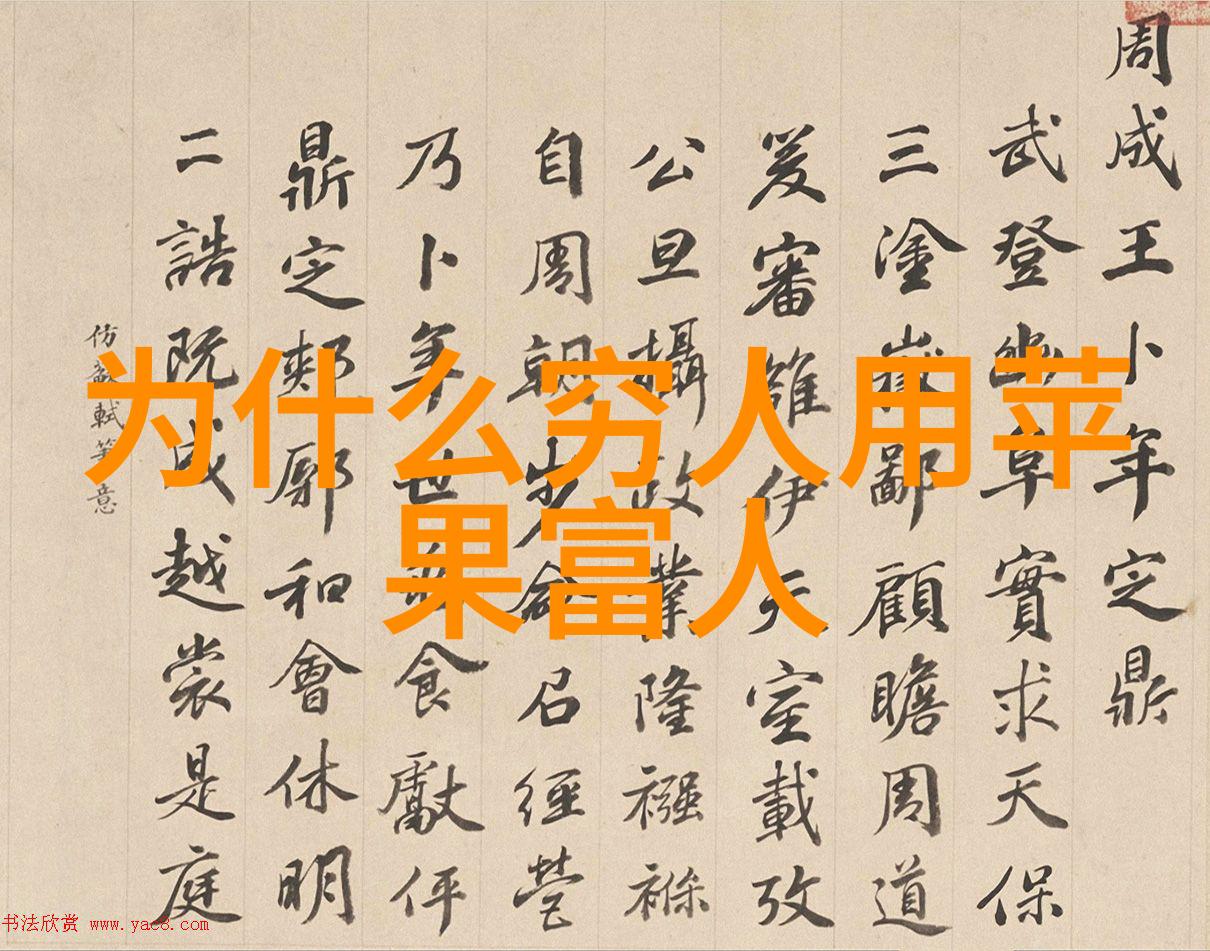 为什么穷人用苹
果富人
周成王卜年定鼎
武登阜實求天保
三塗嶽鄙顧瞻周道
爰審雒伊天室載攷
公旦攝政業隆襁褓
自周朝步命召經營
乃卜年世食獻伻
鼎定郟鄏和會休明
二誥既成越裳是庭
仿蘇軾筆意
书法欣赏 www.yac8.com